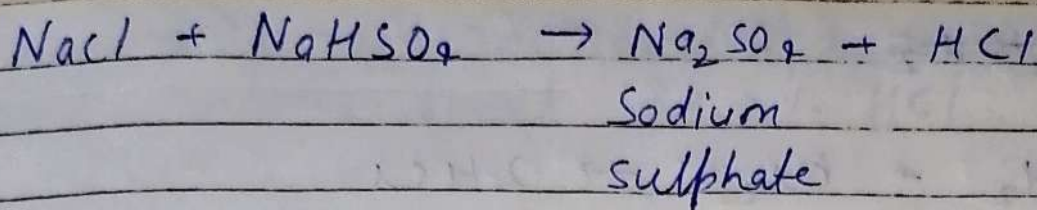 NaCl + NaHSO4 → Na2SO4 + HCl
Sodium
sulphate